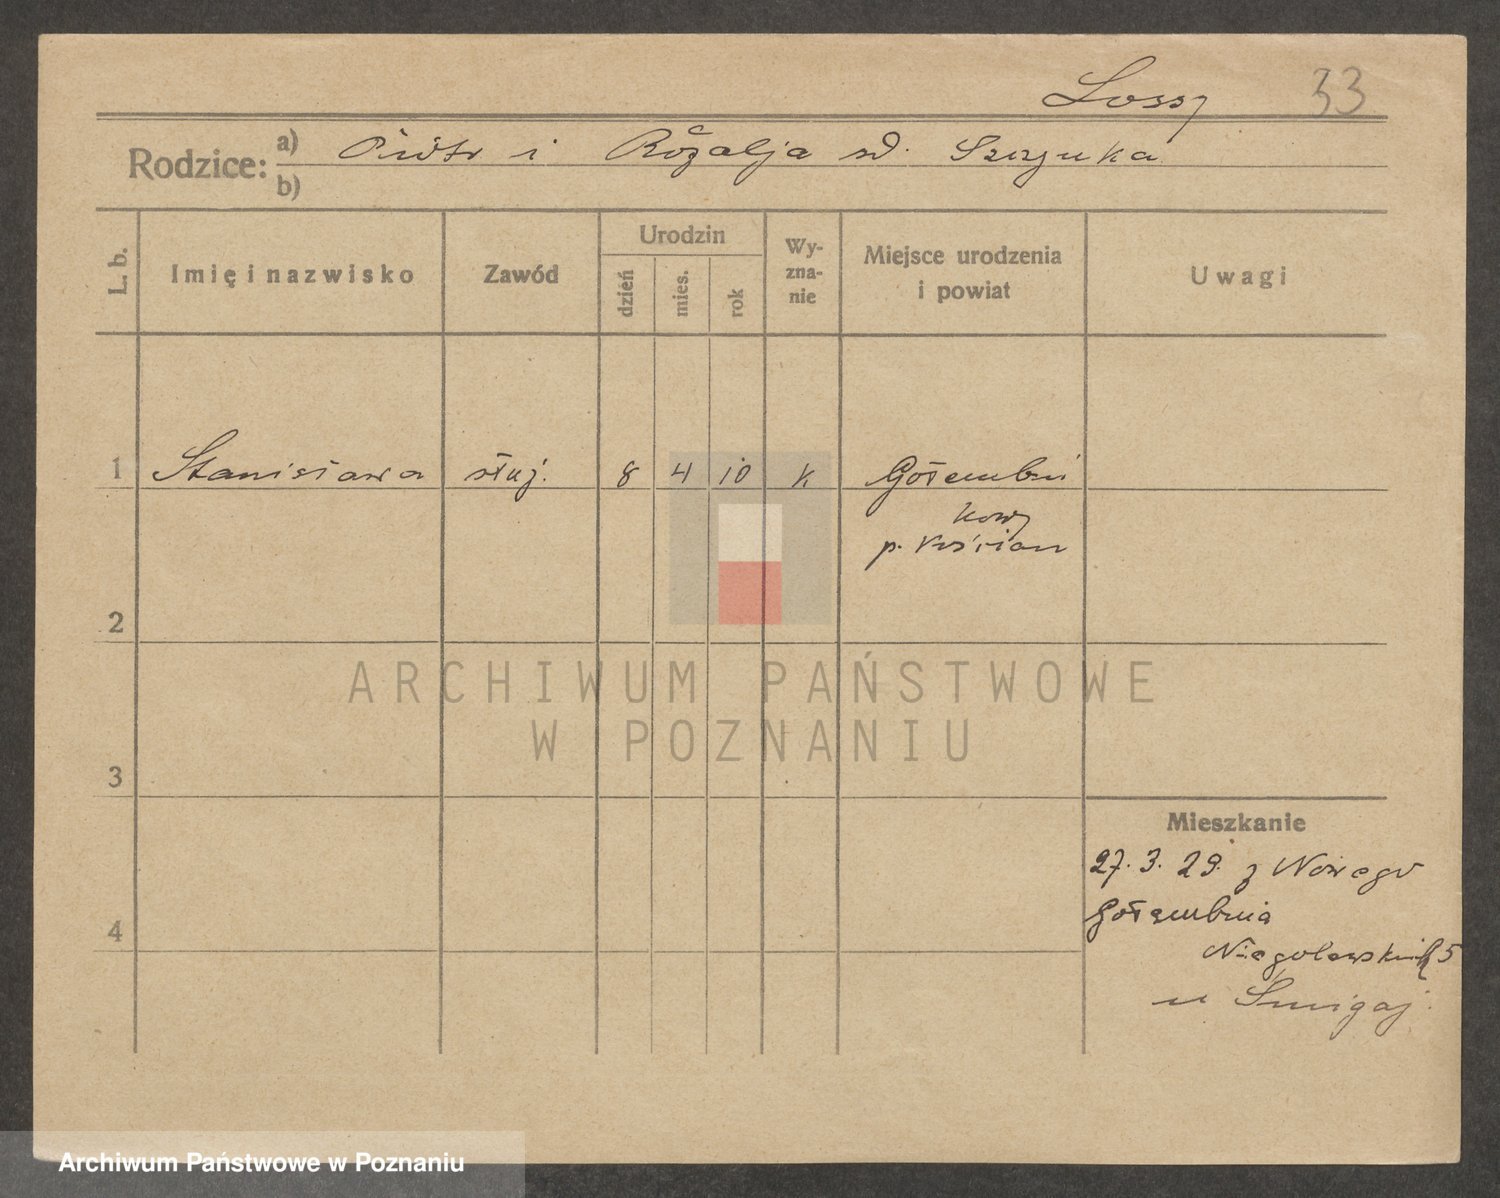 Lossy 33
Rodzice: a) Piotr i Rozalja zd. Szczuka
b)
L. b. Imię i nazwisko Zawód Urodzin dzień mies. rok Wy-zna-nie Miejsce urodzenia i powiat Uwagi
1 Stanisława służ. 8 4 10 k Gołembin
Nowy
p. Kościan
2
ARCHIWUM PAŃSTWOWE
W POZNANIU
3
Mieszkanie
27. 3. 29. z Nowego
Gołembina
4
Niegolewskich 5
u Śmigaj
Archiwum Państwowe w Poznaniu